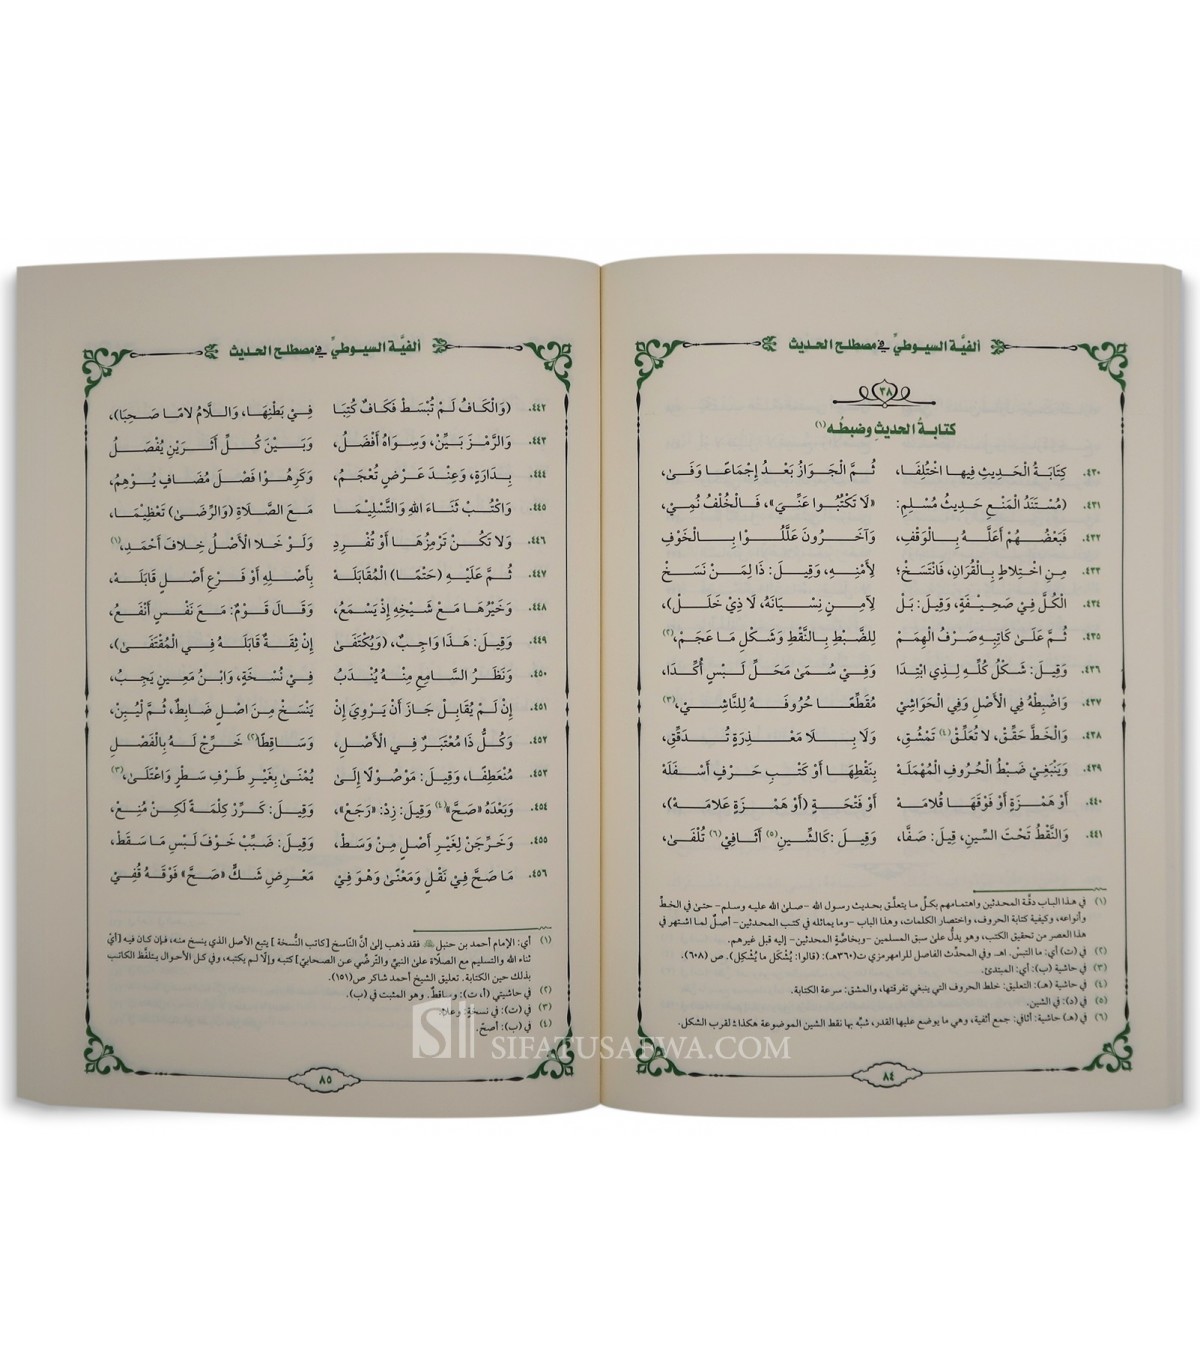 ألفيَّة السيوطيِّ في مصطلح الحديث
٣٨
كتابةُ الحديثِ وضبطُه (١)
٤٣٠. كِتَابَةُ الْحَدِيثِ فِيهَا اخْتُلِفَا، ثُمَّ الْجَوَازُ بَعْدُ إِجْمَاعًا وَفَىٰ،
٤٣١. (مُسْتَنَدُ الْمَنْعِ حَدِيثُ مُسْلِمِ: «لَا تَكْتُبُوا عَنِّيَ»، فَالْخُلْفُ نُمِيْ،
٤٣٢. فَبَعْضُهُمْ أَعَلَّهُ بِالْوَقْفِ، وَآخَرُونَ عَلَّلُوا بِالْخَوْفِ
٤٣٣. مِنِ اخْتِلَاطٍ بِالْقُرَانِ، فَانْتَسَخْ؛ لِأَمْنِهِ، وَقِيلَ: ذَا لِمَنْ نَسَخْ
٤٣٤. الْكُلَّ فِيْ صَحِيفَةٍ، وَقِيلَ: بَلْ لِآمِنٍ نِسْيَانَهُ، لَا ذِيْ خَلَلْ)،
٤٣٥. ثُمَّ عَلَىٰ كَاتِبِهِ صَرْفُ الْهِمَمْ لِلضَّبْطِ بِالنَّقْطِ وَشَكْلِ مَا عَجَمْ، (٢)
٤٣٦. وَقِيلَ: شَكْلُ كُلِّهِ لِذِي ابْتِدَا وَفِيْ سُمَىٰ مَحَلِّ لَبْسٍ أُكِّدَا،
٤٣٧. وَاضْبِطْهُ فِي الْأَصْلِ وَفِي الْحَوَاشِيْ مُقَطِّعًا حُرُوفَهُ لِلنَّاشِيْ، (٣)
٤٣٨. وَالْخَطَّ حَقِّقْ، لَا تُعَلِّقْ (٤) تَمْشُقِ، وَلَا بِلَا مَعْذِرَةٍ تُدَقِّقِ،
٤٣٩. وَيَنْبَغِيْ ضَبْطُ الْحُرُوفِ الْمُهْمَلَهْ بِنَقْطِهَا أَوْ كَتْبِ حَرْفٍ أَسْفَلَهْ
٤٤٠. أَوْ هَمْزَةٍ أَوْ فَوْقَهَا قُلَامَهْ أَوْ فَتْحَةٍ (أَوْ هَمْزَةٍ عَلَامَهْ)،
٤٤١. وَالنَّقْطُ تَحْتَ السِّينِ، قِيلَ: صَفَّا، وَقِيلَ: كَالشِّينِ (٥) أَثَافِيْ (٦) تُلْفَىٰ،
(١) في هذا الباب دقَّة المحدثين واهتمامهم بكلِّ ما يتعلَّق بحديث رسول الله -صلى الله عليه وسلم- حتىٰ في الخطِّ
وأنواعه، وكيفية كتابة الحروف، واختصار الكلمات، وهذا الباب -وما يماثله في كتب المحدثين- أصلٌ لما اشتهر في
هذا العصر من تحقيق الكتب، وهو يدلُّ علىٰ سبق المسلمين -وبخاصَّةٍ المحدثين- إليه قبل غيرهم.
(٢) في (ت) أي: ما التبس. اهـ. وفي المحدِّث الفاصل للرامهرمزي ت(٣٦٠هـ): (قالوا: يُشْكَل ما يُشْكِل). ص (٦٠٨).
(٣) في حاشية (ب): أي: المبتدئ.
(٤) في حاشية (هـ): التعليق: خلط الحروف التي ينبغي تفرقتها، والمشق: سرعة الكتابة.
(٥) في (د): في الشين.
(٦) في (هـ) حاشية: أثافي: جمع أثفية، وهي ما يوضع عليها القدر، شبَّه بها نقط الشين الموضوعة هكذا ∴ لقرب الشكل.
٨٤
ألفيَّة السيوطيِّ في مصطلح الحديث
٤٤٢. (وَالْكَافُ لَمْ تُبْسَطْ فَكَافٌ كُتِبَا فِيْ بَطْنِهَا، وَاللَّامُ لَامًا صَحِبَا)،
٤٤٣. وَالرَّمْزَ بَيِّنْ، وَسِوَاهُ أَفْضَلُ، وَبَيْنَ كُلِّ أَثَرَيْنِ يُفْصَلُ
٤٤٤. بِدَارَةٍ، وَعِنْدَ عَرْضٍ تُعْجَمُ، وَكَرِهُوا فَصْلَ مُضَافٍ يُوهِمُ،
٤٤٥. وَاكْتُبْ ثَنَاءَ اللهِ وَالتَّسْلِيْمَا مَعَ الصَّلَاةِ (وَالرِّضَىٰ) تَعْظِيْمَا،
٤٤٦. وَلَا تَكُنْ تَرْمِزُهَا أَوْ تُفْرِدِ وَلَوْ خَلَا الْأَصْلُ خِلَافَ أَحْمَدِ، (١)
٤٤٧. ثُمَّ عَلَيْهِ (حَتْمًا) الْمُقَابَلَهْ بِأَصْلِهِ أَوْ فَرْعِ أَصْلٍ قَابَلَهْ،
٤٤٨. وَخَيْرُهَا مَعْ شَيْخِهِ إِذْ يَسْمَعُ، وَقَالَ قَوْمٌ: مَعَ نَفْسٍ أَنْفَعُ،
٤٤٩. وَقِيلَ: هَذَا وَاجِبٌ، (وَيُكْتَفَىٰ إِنْ ثِقَةٌ قَابَلَهُ فِي الْمُقْتَفَىٰ)،
٤٥٠. وَنَظَرُ السَّامِعِ مِنْهُ يُنْدَبُ فِيْ نُسْخَةٍ، وَابْنُ مَعِينٍ يَجِبُ،
٤٥١. إِنْ لَمْ يُقَابِلْ جَازَ أَنْ يَرْوِيَ إِنْ يَنْسَخْ مِنَ اصْلٍ ضَابِطٌ، ثُمَّ لْيُبِنْ،
٤٥٢. وَكُلُّ ذَا مُعْتَبَرٌ فِي الْأَصْلِ، وَسَاقِطًا (٢) خَرِّجْ لَهُ بِالْفَصْلِ
٤٥٣. مُنْعَطِفًا، وَقِيلَ: مَوْصُولًا إِلَىٰ يُمْنَىٰ بِغَيْرِ طَرْفِ سَطْرٍ وَاعْتَلَىٰ، (٣)
٤٥٤. وَبَعْدَهُ «صَحَّ» (٤) وَقِيلَ: زِدْ: «رَجَعْ»، وَقِيلَ: كَرِّرْ كِلْمَةً لَكِنْ مُنِعْ،
٤٥٥. وَخَرِّجَنْ لِغَيْرِ أَصْلٍ مِنْ وَسَطْ، وَقِيلَ: ضَبِّبْ خَوْفَ لَبْسِ مَا سَقَطْ،
٤٥٦. مَا صَحَّ فِيْ نَقْلٍ وَمَعْنًىٰ وَهْوَ فِيْ مَعْرِضِ شَكٍّ «صَحَّ» فَوْقَهُ قُفِيْ
(١) أي: الإمام أحمد بن حنبل ﵀ فقد ذهب إلىٰ أنَّ النَّاسخ [كاتب النُّسخة] يتبع الأصل الذي ينسخ منه، فإن كان فيه [أيْ
ثناء الله والتسليم مع الصلَّاة علىٰ النبيِّ والترضِّي عن الصحابيِّ] كتبه وإلَّا لم يكتبه، وفي كل الأحوال يتلفَّظ الكاتب
بذلك حين الكتابة. تعليق الشيخ أحمد شاكر ص(١٥١).
(٢) في حاشيتي (أ، ت): وساقطٌ. وهو المثبت في (ب).
(٣) في (ت): في نسخةٍ: وعلا.
(٤) في (ب): أصحّ.
٨٥
SIFATUSAFWA.COM